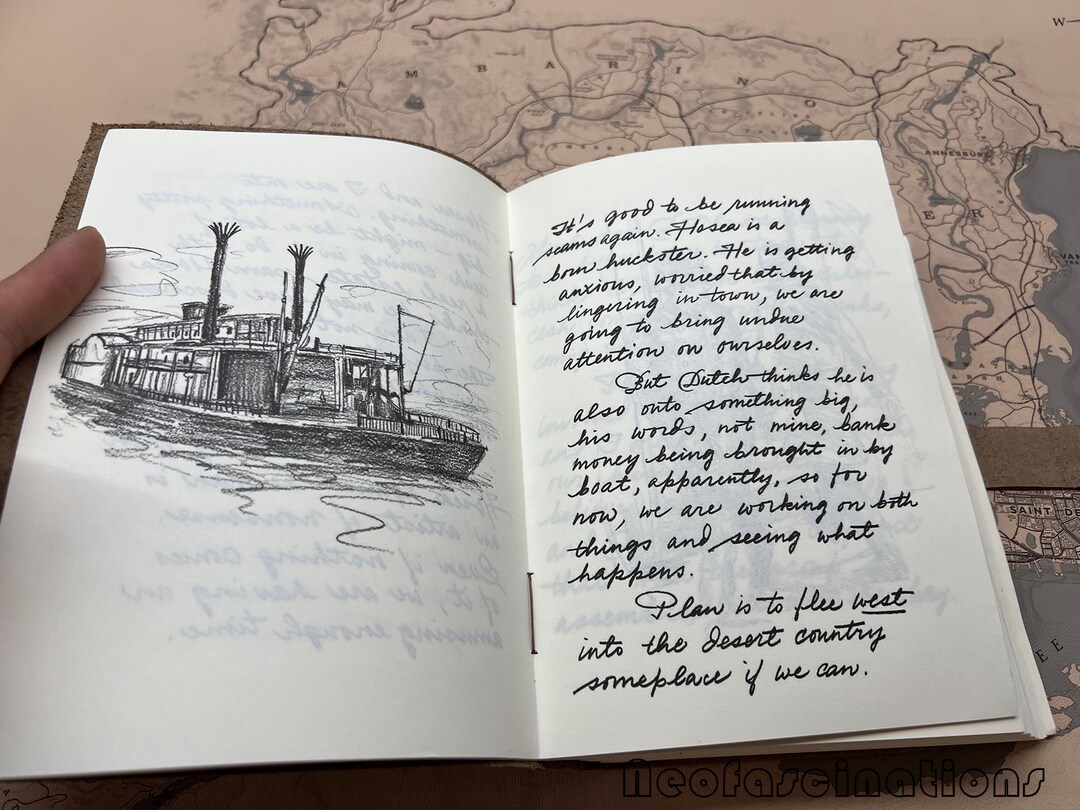 W
A M B A R I N O
ANNESBURG
It's good to be running
scams again. Hosea is a
born huckster. He is getting
anxious, worried that by
lingering in town, we are
going to bring undue
attention on ourselves.
But Dutch thinks he is
also onto something big,
his words, not mine, bank
money being brought in by
boat, apparently, so for
now, we are working on both
things and seeing what
happens.
Plan is to flee west
into the desert country
someplace if we can.
SAINT DE
Neofascinations